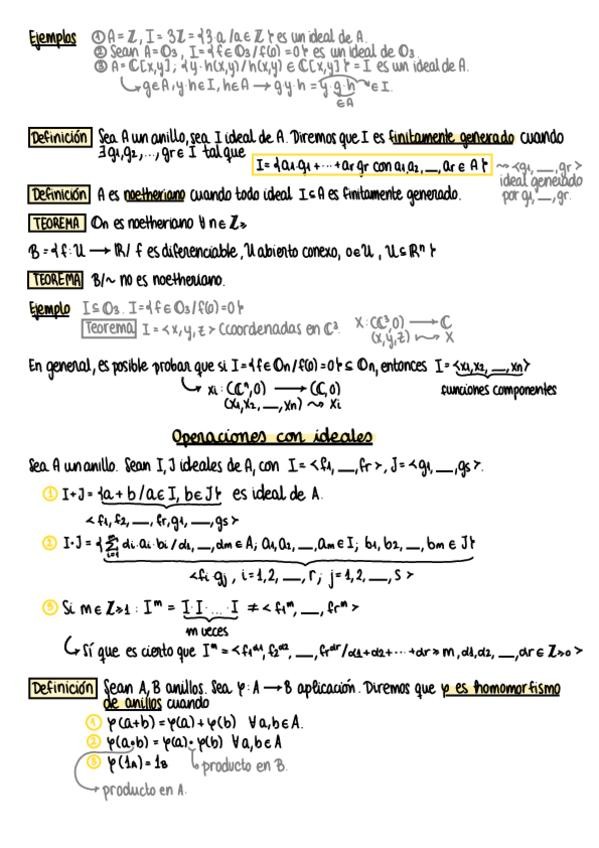 Ejemplos ① A = ℤ, I = 3ℤ = {3·a / a ∈ ℤ} es un ideal de A.
② Sean A = O₃, I = {f ∈ O₃ / f(0) = 0} es un ideal de O₃.
③ A = ℂ[x,y]; {y·h(x,y) / h(x,y) ∈ ℂ[x,y]} = I es un ideal de A.
↳ g∈A, y·h∈I, h∈A → g·y·h = y·g·h ∈ I.
∈A
Definición Sea A un anillo, sea I ideal de A. Diremos que I es finitamente generado cuando
∃ g₁, g₂, ..., gr ∈ I tal que
I = {a₁·g₁ + ··· + ar·gr con a₁, a₂, __, ar ∈ A} ~ <g₁, __, gr>
ideal generado
por g₁, __, gr.
Definición A es noetheriano cuando todo ideal I ⊆ A es finitamente generado.
TEOREMA On es noetheriano ∀ n ∈ ℤ>
B = {f: U → ℝ / f es diferenciable, U abierto conexo, 0 ∈ U, U ⊆ ℝⁿ}
TEOREMA B/~ no es noetheriano.
Ejemplo I ⊆ O₃. I = {f ∈ O₃ / f(0) = 0}
Teorema I = <x, y, z> (coordenadas en ℂ³. X: (ℂ³,0) → ℂ
(x,y,z) ⇝ x
En general, es posible probar que si I = {f ∈ On / f(0) = 0} ⊆ On, entonces I = <x₁, x₂, __, xn>
↳ xi: (ℂⁿ,0) → (ℂ,0) funciones componentes
(x₁, x₂, __, xn) ⇝ xi
Operaciones con ideales
Sea A un anillo. Sean I, J ideales de A, con I = <f₁, __, fr>, J = <g₁, __, gs>.
① I+J = {a + b / a ∈ I, b ∈ J} es ideal de A.
<f₁, f₂, __, fr, g₁, __, gs>
② I·J = {∑ᵢ₌₁ᵐ di·ai·bi / d₁, __, dm ∈ A; a₁, a₂, __, am ∈ I; b₁, b₂, __, bm ∈ J}
<fi gj, i = 1,2, __, r; j = 1,2, __, s>
③ Si m ∈ ℤ≥1: Iᵐ = I·I·...·I ≠ <f₁ᵐ, __, frᵐ>
m veces
↳ Sí que es cierto que Iᵐ = <f₁^α1, f₂^α2, __, fr^αr / α₁+α₂+···+αr ≥ m, α₁, α₂, __, αr ∈ ℤ≥0>
Definición Sean A, B anillos. Sea φ: A → B aplicación. Diremos que φ es homomorfismo
de anillos cuando
① φ(a+b) = φ(a) + φ(b) ∀ a,b ∈ A.
② φ(a·b) = φ(a)·φ(b) ∀ a,b ∈ A
③ φ(1A) = 1B ↳ producto en B.
→ producto en A.